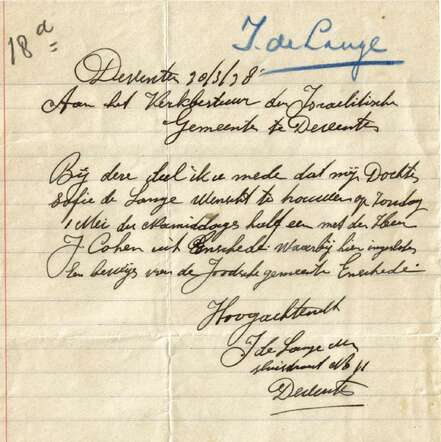 18a
J. de Lange
Deventer 20/3/38
Aan het Kerkbestuur der Israelitische
Gemeente te Deventer
Bij deze deel ik u mede dat mijn Dochter
Sofie de Lange wenscht te trouwen op Zondag
1 Mei des namiddags half een met den Heer
J. Cohen uit Enschede. Waarbij hier ingesloten
een bewijs van de Joodsche gemeente Enschede.
Hoogachtend
J de Lange
Deventer